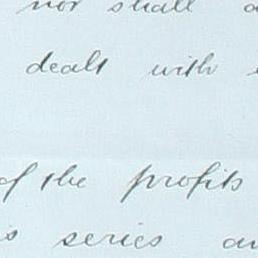 nor shall
dealt with
of the profits
series